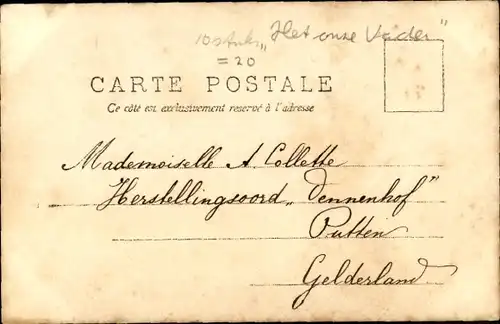 10 stuks „Het onze Vader"
= 20
CARTE POSTALE
Ce côté est exclusivement reservé à l'adresse
Mademoiselle A. Collette
Herstellingsoord „Dennenhof"
Putten
Gelderland